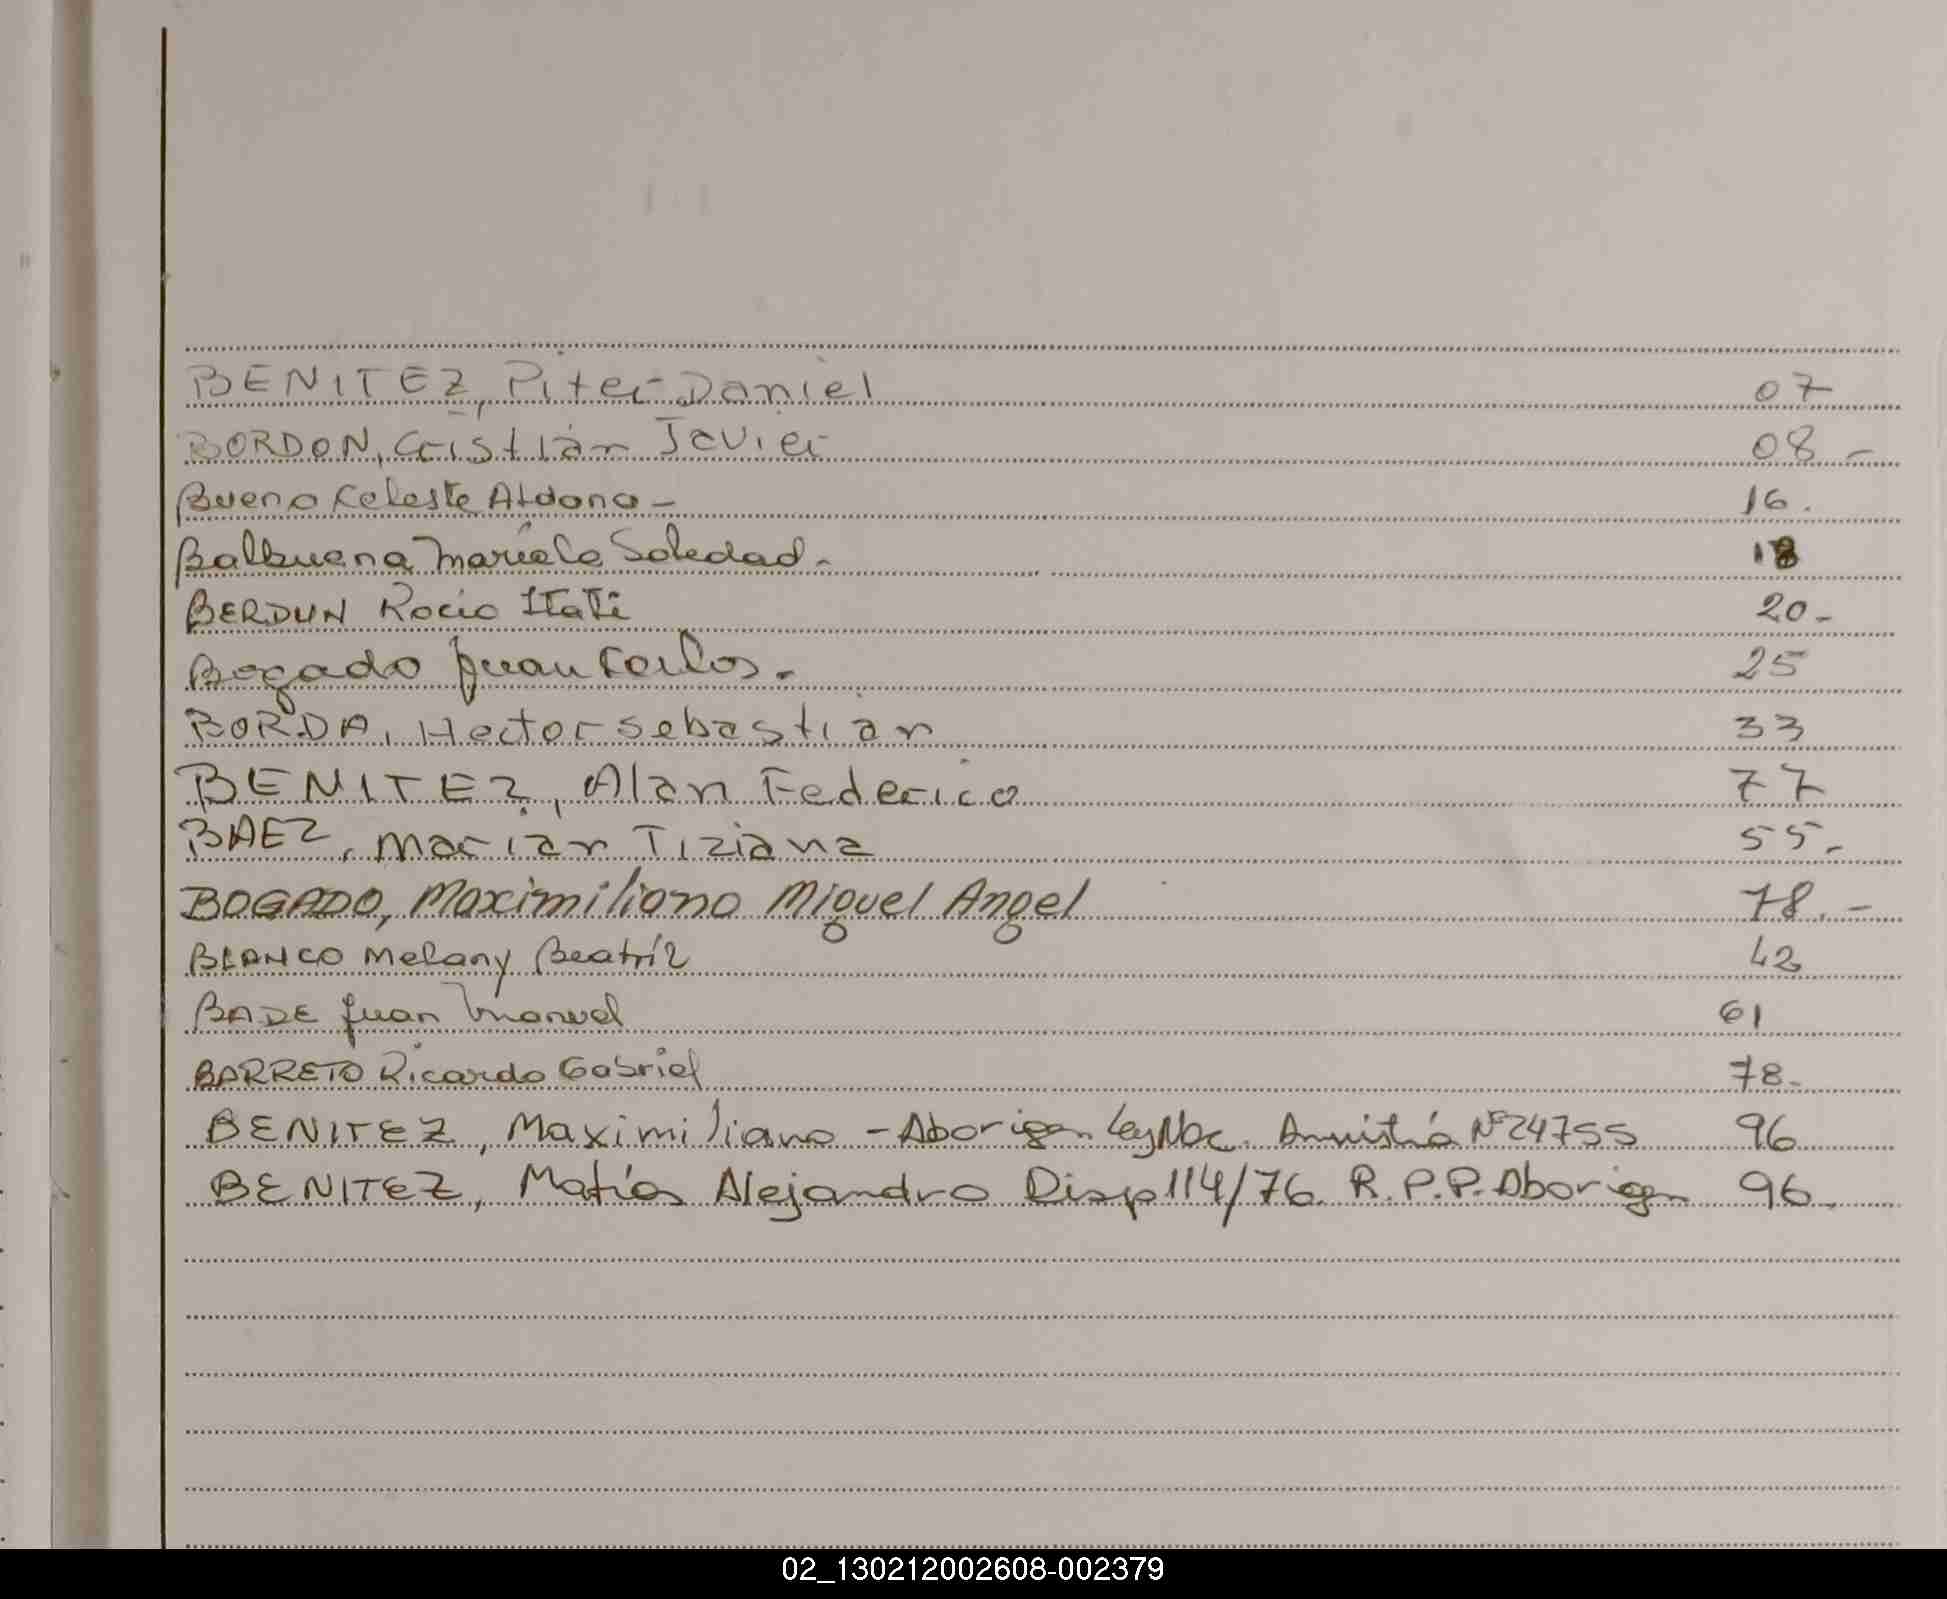 BENITEZ, Piter Daniel 07
BORDON, Cristian Javier 08 -
Bueno Celeste Aldana - 16.
Balbuena Mariela Soledad. 18
BERDUN Rocio Itati 20-
Bogado Juan Carlos. 25
BORDA, Hector sebastian 33
BENITEZ, Alan Federico 77
BAEZ, Marian Tiziana 55.
BOGADO, Maximiliano Miguel Angel 78.-
BLANCO Melany Beatríz 42
BADE Juan Manuel 61
BARRETO Ricardo Gabriel 78-
BENITEZ, Maximiliano - Aborigen Ley Nac. Amnistía Nº 24755 96
BENITEZ, Matías Alejandro Disp 114/76 R.P.P. Aborigen 96.
02_130212002608-002379